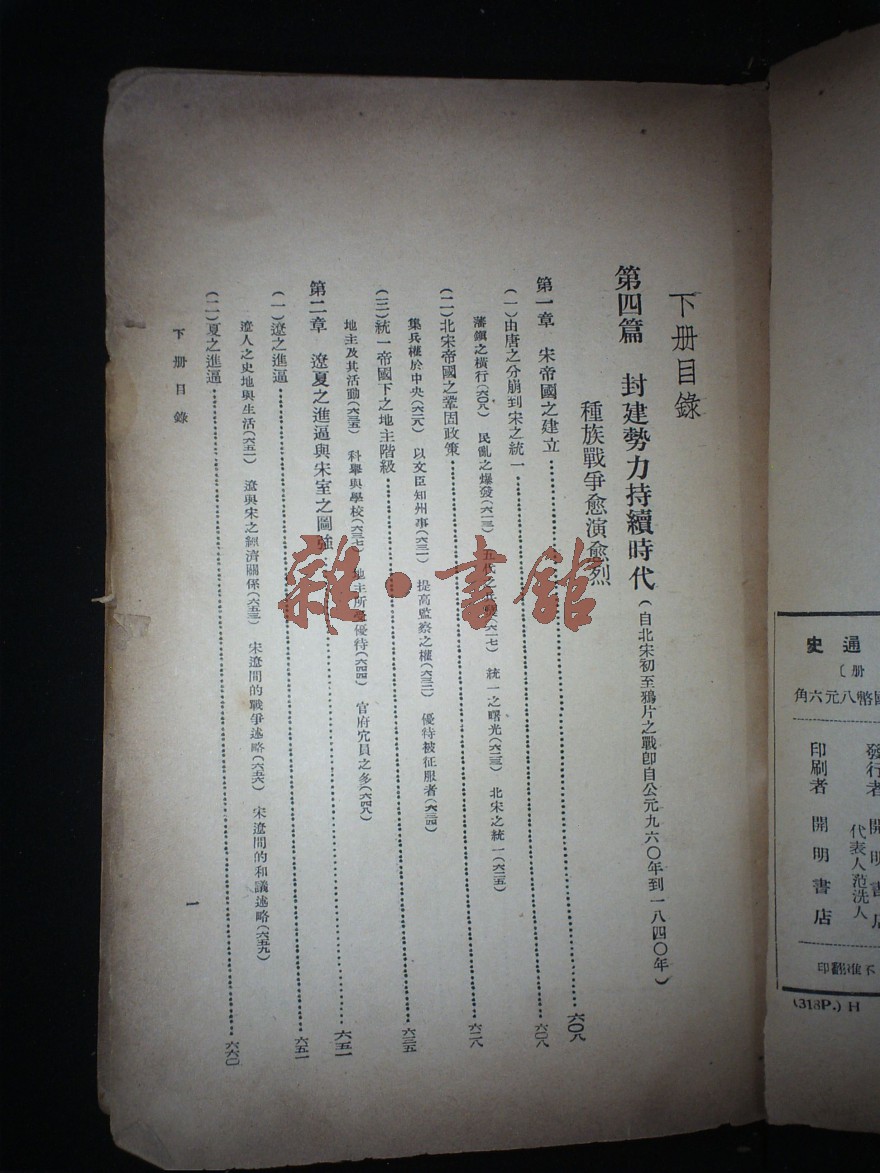 下册目錄
第四篇 封建勢力持續時代(自北宋初至鴉片之戰卽自公元九六〇年到一八四〇年)
種族戰爭愈演愈烈
第一章 宋帝國之建立……六〇八
(一)由唐之分崩到宋之統一……六〇八
藩鎭之橫行(六〇八) 民亂之爆發(六一三) 五代之(六一七) 統一之曙光(六二三) 北宋之統一(六二五)
(二)北宋帝國之鞏固政策……六二八
集兵權於中央(六二八) 以文臣知州事(六三一) 提高監察之權(六三二) 優待被征服者(六三四)
(三)統一帝國下之地主階級……六三五
地主及其活動(六三五) 科舉與學校(六三七) 地主所受優待(六四四) 官府冗員之多(六四八)
第二章 遼夏之進逼與宋室之圖強……六五一
(一)遼之進逼……六五一
遼人之史地與生活(六五一) 遼與宋之經濟關係(六五三) 宋遼間的戰爭述略(六五六) 宋遼間的和議述略(六五九)
(二)夏之進逼……六六〇
下册目錄
一
雜·書館
通史
册〕
國幣八元六角
發行者 開明書店
代表人范洗人
印刷者 開明書店
不准翻印
(318P.) H